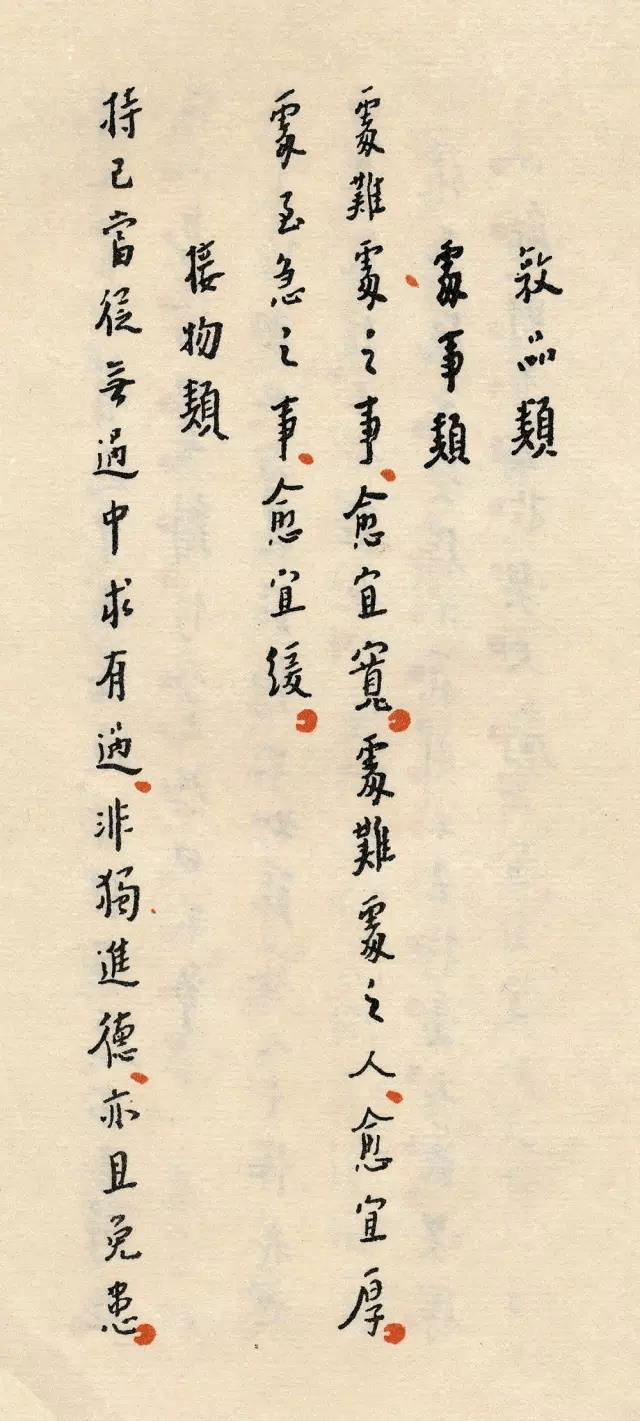 敦品類
處事類
處難處之事、愈宜寬。處難處之人、愈宜厚。
處至急之事、愈宜緩。
接物類
持己當從無過中求有過、非獨進德、亦且免患。